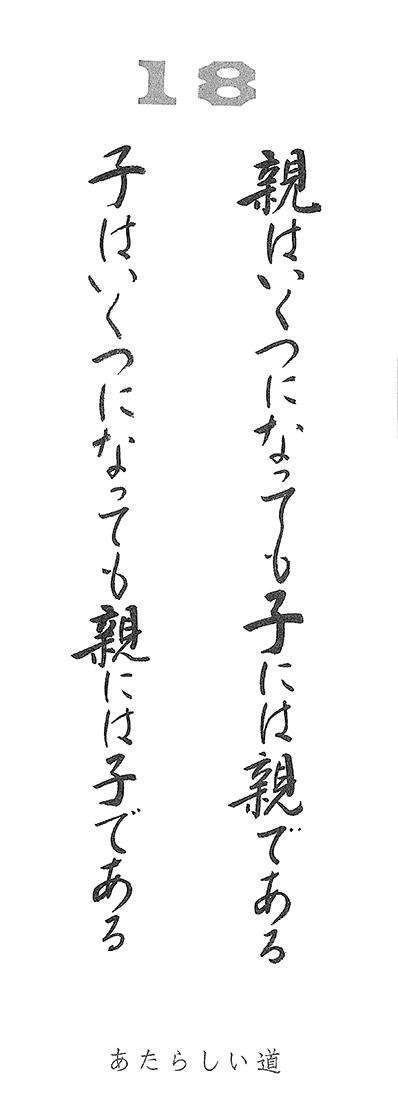 18
親はいくつになっても子には親である
子はいくつになっても親には子である
あたらしい道